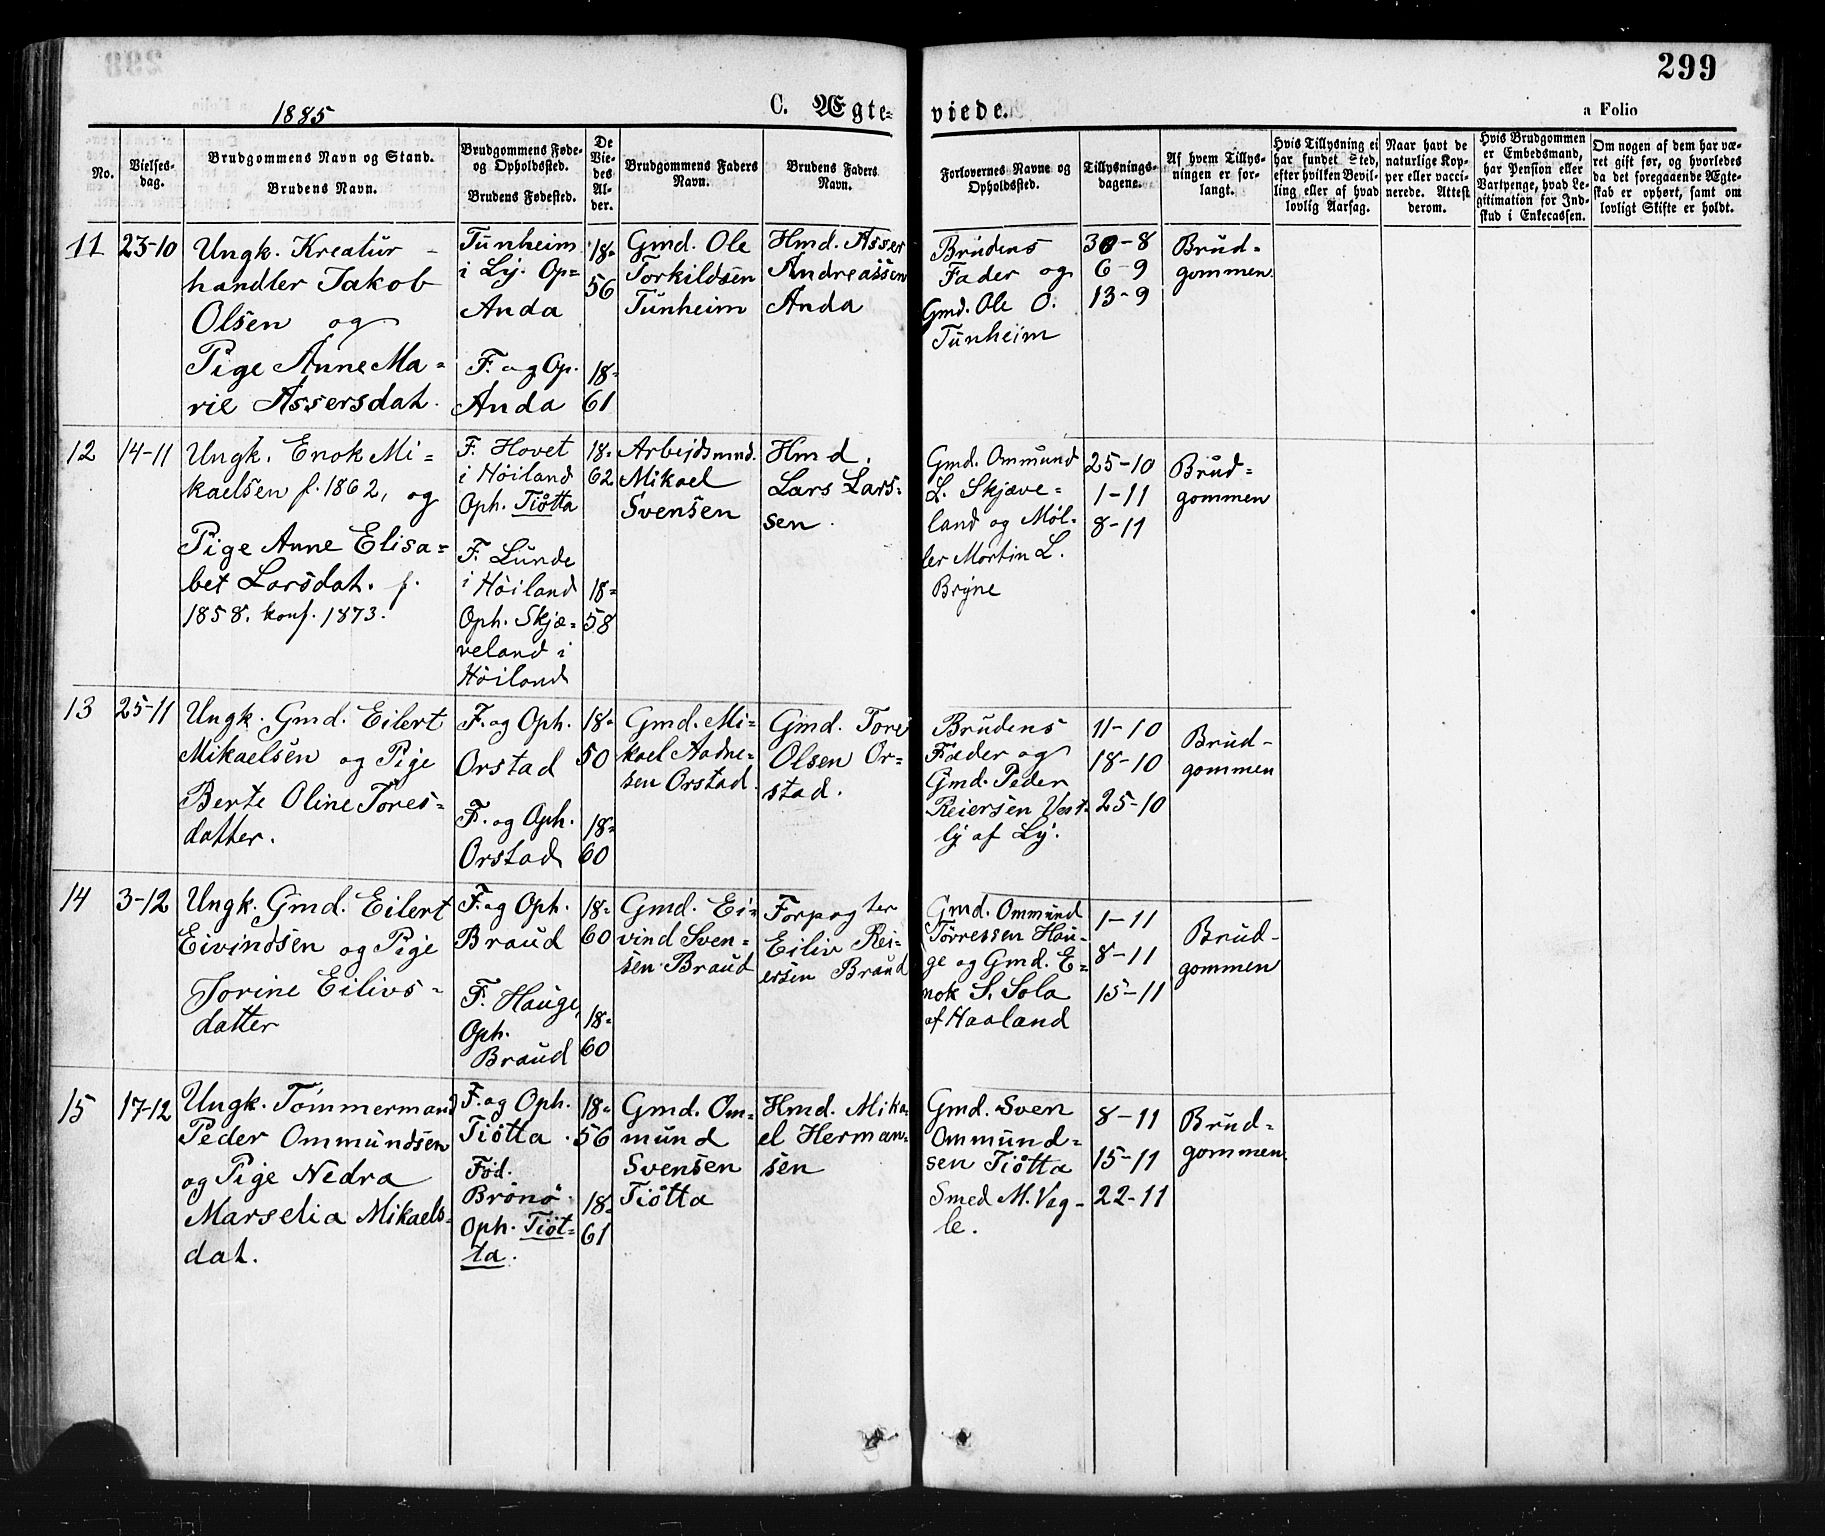 299
1885
C. Ægte-
viede.
a Folio
No.
Vielses-
dag.
Brudgommens Navn og Stand.
Brudens Navn.
Brudgommens Føde-
og Opholdssted.
Brudens Fødested.
De
Vie-
des
Al-
der.
Brudgommens Faders
Navn.
Brudens Faders
Navn.
Forlovernes Navne og
Opholdssted.
Tillysnings-
dagene.
Af hvem Tillys-
ningen er for-
langt.
Hvis Tillysning ei
har fundet Sted,
efter hvilken Bevil-
ling eller af hvad
lovlig Aarsag.
Naar havt de
naturlige Kop-
per eller vacci-
nerede. Attest
derom.
Hvis Brudgommen
er Embedsmand,
har Pension eller
Vartpenge, hvad Le-
gitimation for Ind-
skud i Enkecassen.
Om nogen af dem har væ-
ret gift før, og hvorledes
da det foregaaende Ægte-
skab er ophørt, samt om
lovligt Skifte er holdt.
11
23-10
Ungk. Kreatur-
handler Jakob
Olsen og
Pige Anne Ma=
rie Assersdat.
Tunheim
i Ly. Op=
Anda
F. og Op.
Anda
18=
56
18=
61
Gmd. Ole
Torkildsen
Tunheim
Hmd. Asser
Andreassen
Anda
Brudens
Fader og
Gmd. Ole O.
Tunheim
30-8
6-9
13-9
Brud=
gommen
12
14-11
Ungk. Enok Mi=
kaelsen f. 1862, og
Pige Anne Elisa=
bet Larsdat. f.
1858. konf. 1873.
F. Hovet
i Höiland
Oph. Tiötta
F. Lunde
i Höiland
Oph. Skjæ=
veland i
Höiland
18=
62
18=
58
Arbejdsmnd.
Mikael
Svensen
Hmd.
Lars Lars=
sen.
Gmd. Ommund
L. Skjæve=
land og Møl=
ler Martin L.
Bryne
25-10
1-11
8-11
Brud=
gommen
13
25-11
Ungk. Gmd. Eilert
Mikaelsen og Pige
Berte Oline Tores=
datter.
F. og Oph.
Orstad
F. og Oph.
Orstad
18=
50
18=
60
Gmd. Mi=
kael Aadne=
sen Orstad.
Gmd. Tore
Olsen Or=
stad.
Brudens
Fader og
Gmd. Peder
Reiersen Vest=
ly af Ly.
11-10
18-10
25-10
Brud-
gommen
14
3-12
Ungk. Gmd. Eilert
Eivindsen og Pige
Torine Eilivs=
datter
F. og Oph.
Braud
F. Hauge,
Oph.
Braud
18=
60
18=
60
Gmd. Ei=
vind Sven=
sen Braud
Forpagter
Eiliv Rei=
ersen Braud
Gmd. Ommund
Tørressen Hau=
ge og Gmd. E=
nok S. Sola
af Haaland
1-11
8-11
15-11
Brud-
gommen
15
17-12
Ungk. Tömmermand
Peder Ommundsen
og Pige Nedra
Marselia Mikaels=
dat.
F. og Oph.
Tiötta.
Fød.
Brönö
Oph. Tiöt=
ta.
18=
56
18=
61
Gmd. Om=
mund
Svensen
Tiötta
Hmd. Mika
el Herman=
sen
Gmd. Sven
Ommund=
sen Tiötta
Smed M. Vag-
le.
8-11
15-11
22-11
Brud=
gommen.